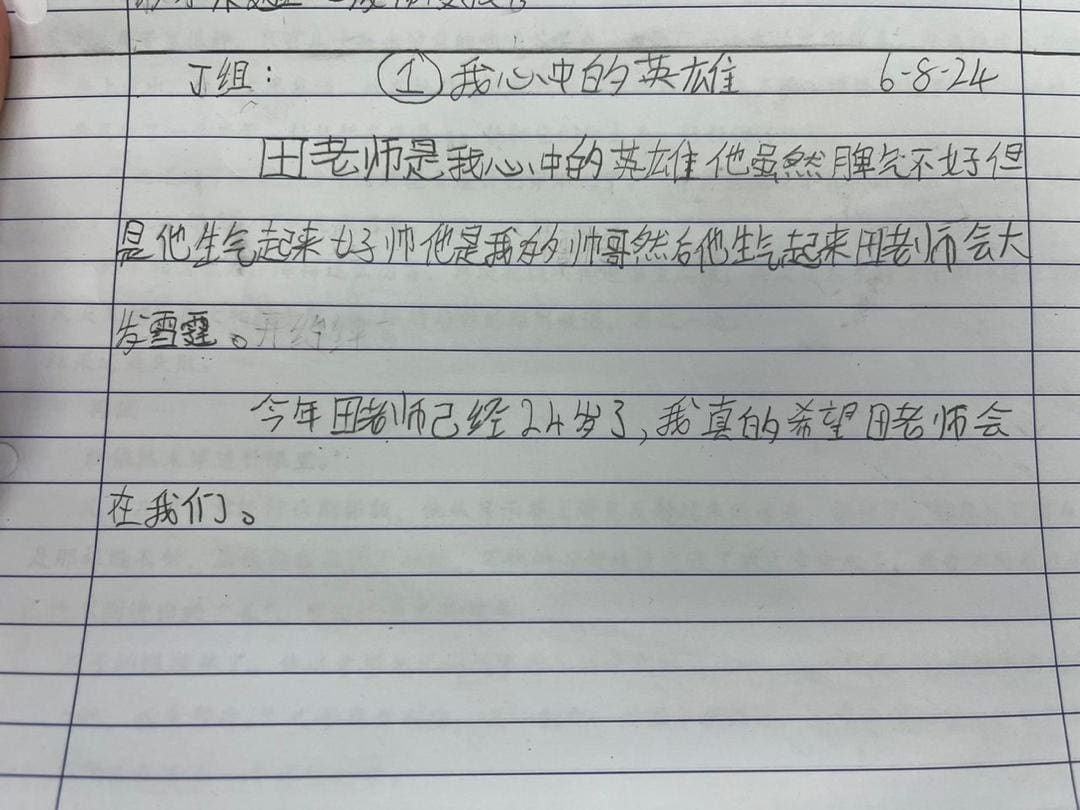 丁组: ①我心中的英雄 6-8-24
田老师是我心中的英雄他虽然脾气不好但
是他生气起来好帅他是我的帅哥然后他生气起来田老师会大
发雪霆。
今年田老师己经24岁了,我真的希望田老师会
在我们。